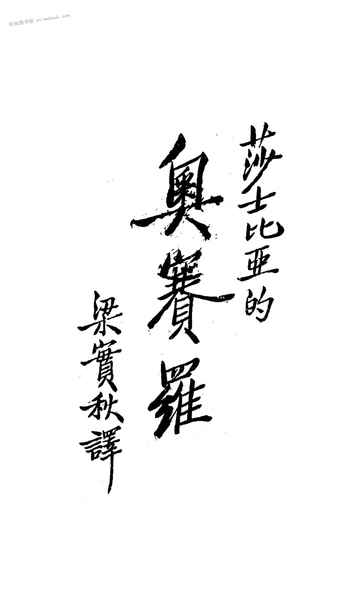 莎士比亞的
奧賽羅
梁實秋譯